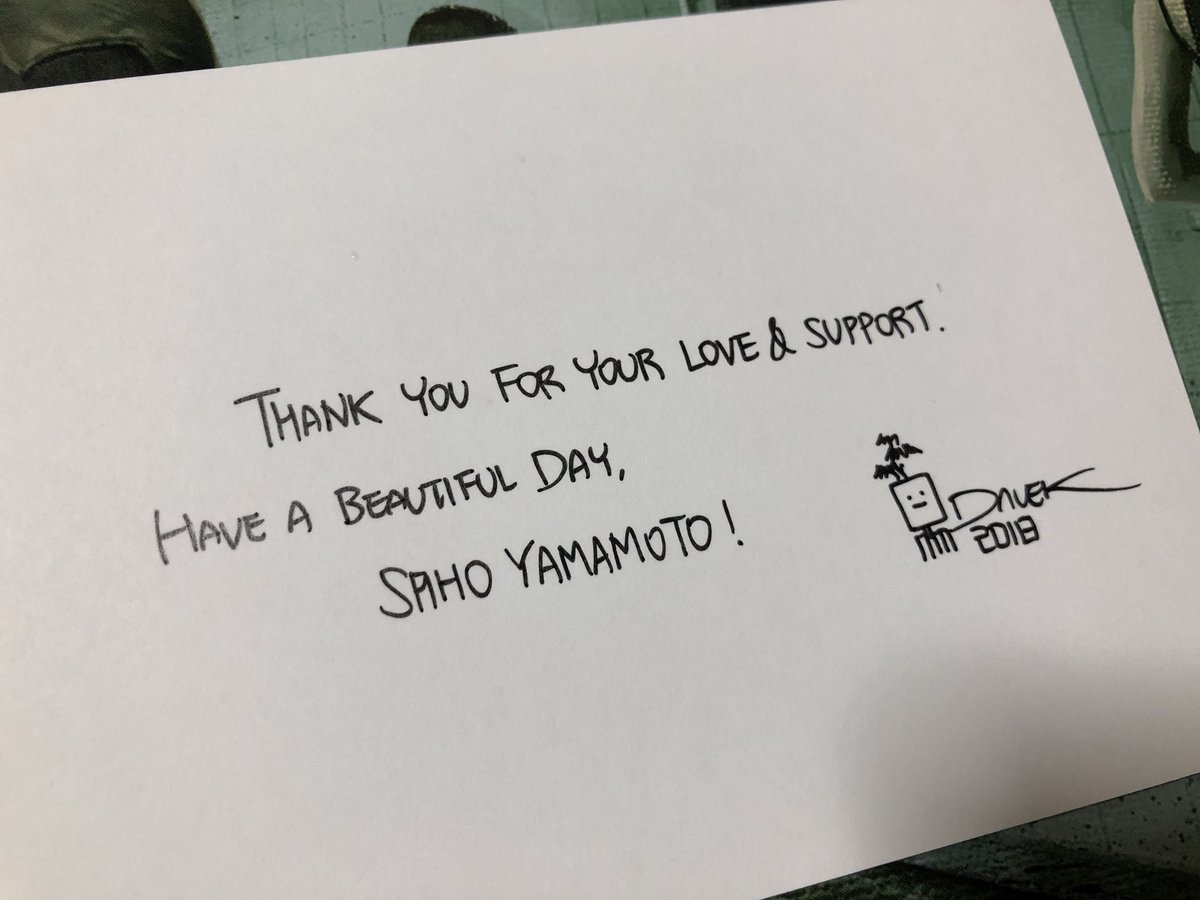 THANK YOU FOR YOUR LOVE & SUPPORT.
HAVE A BEAUTIFUL DAY,
SAHO YAMAMOTO!
DAVEK
2018